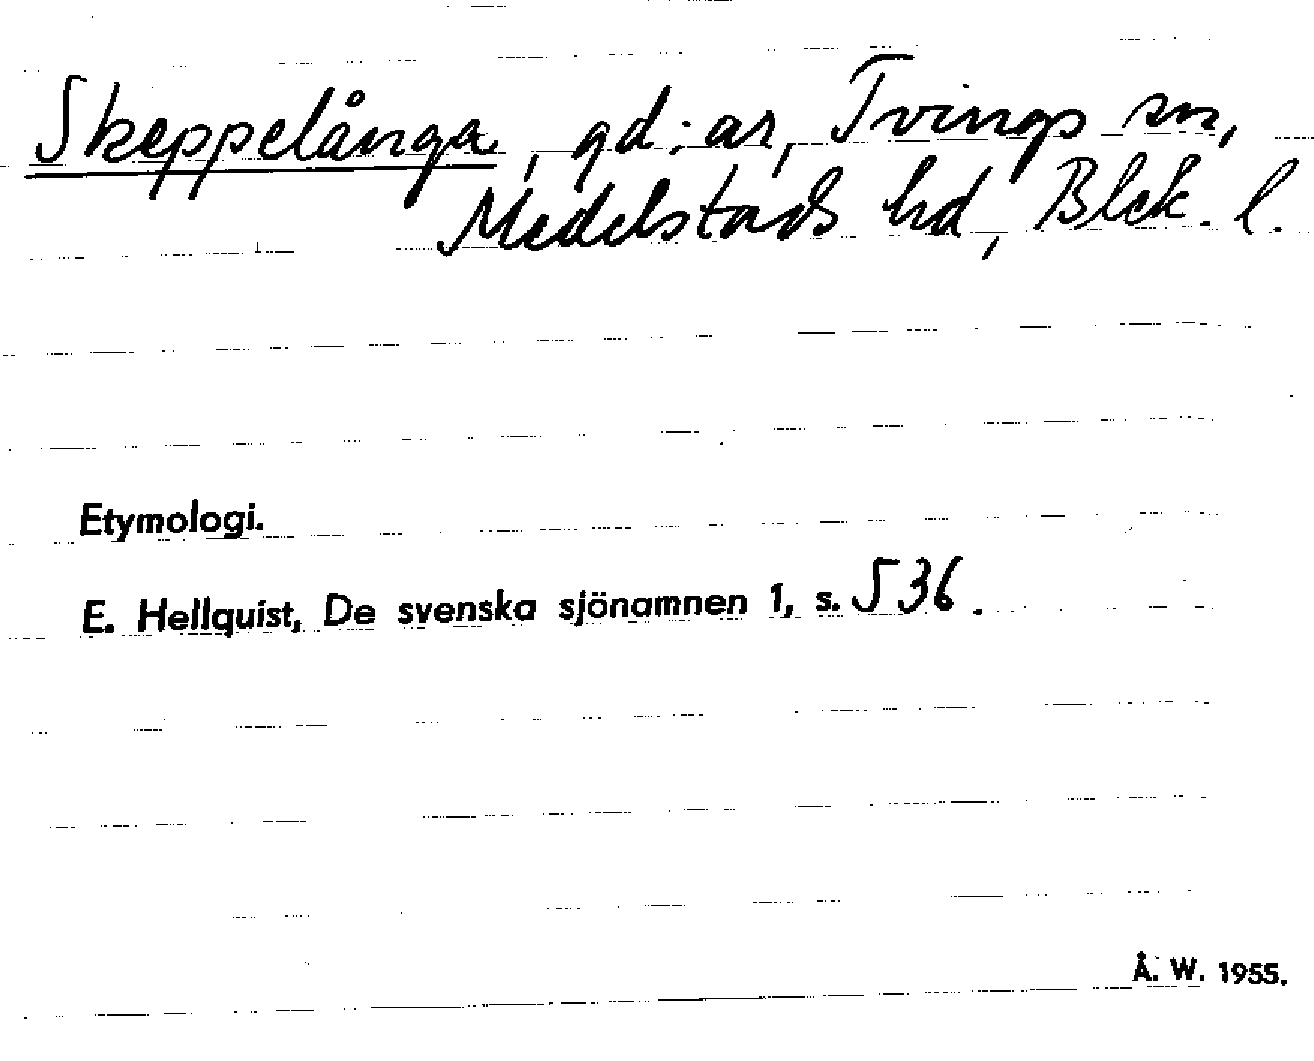 Skeppelånga, gd:ar, Tvings sn,
Medelstads hd, Blek. l.
Etymologi.
E. Hellquist, De svenska sjönamnen 1, s. 536.
Å. W. 1955.